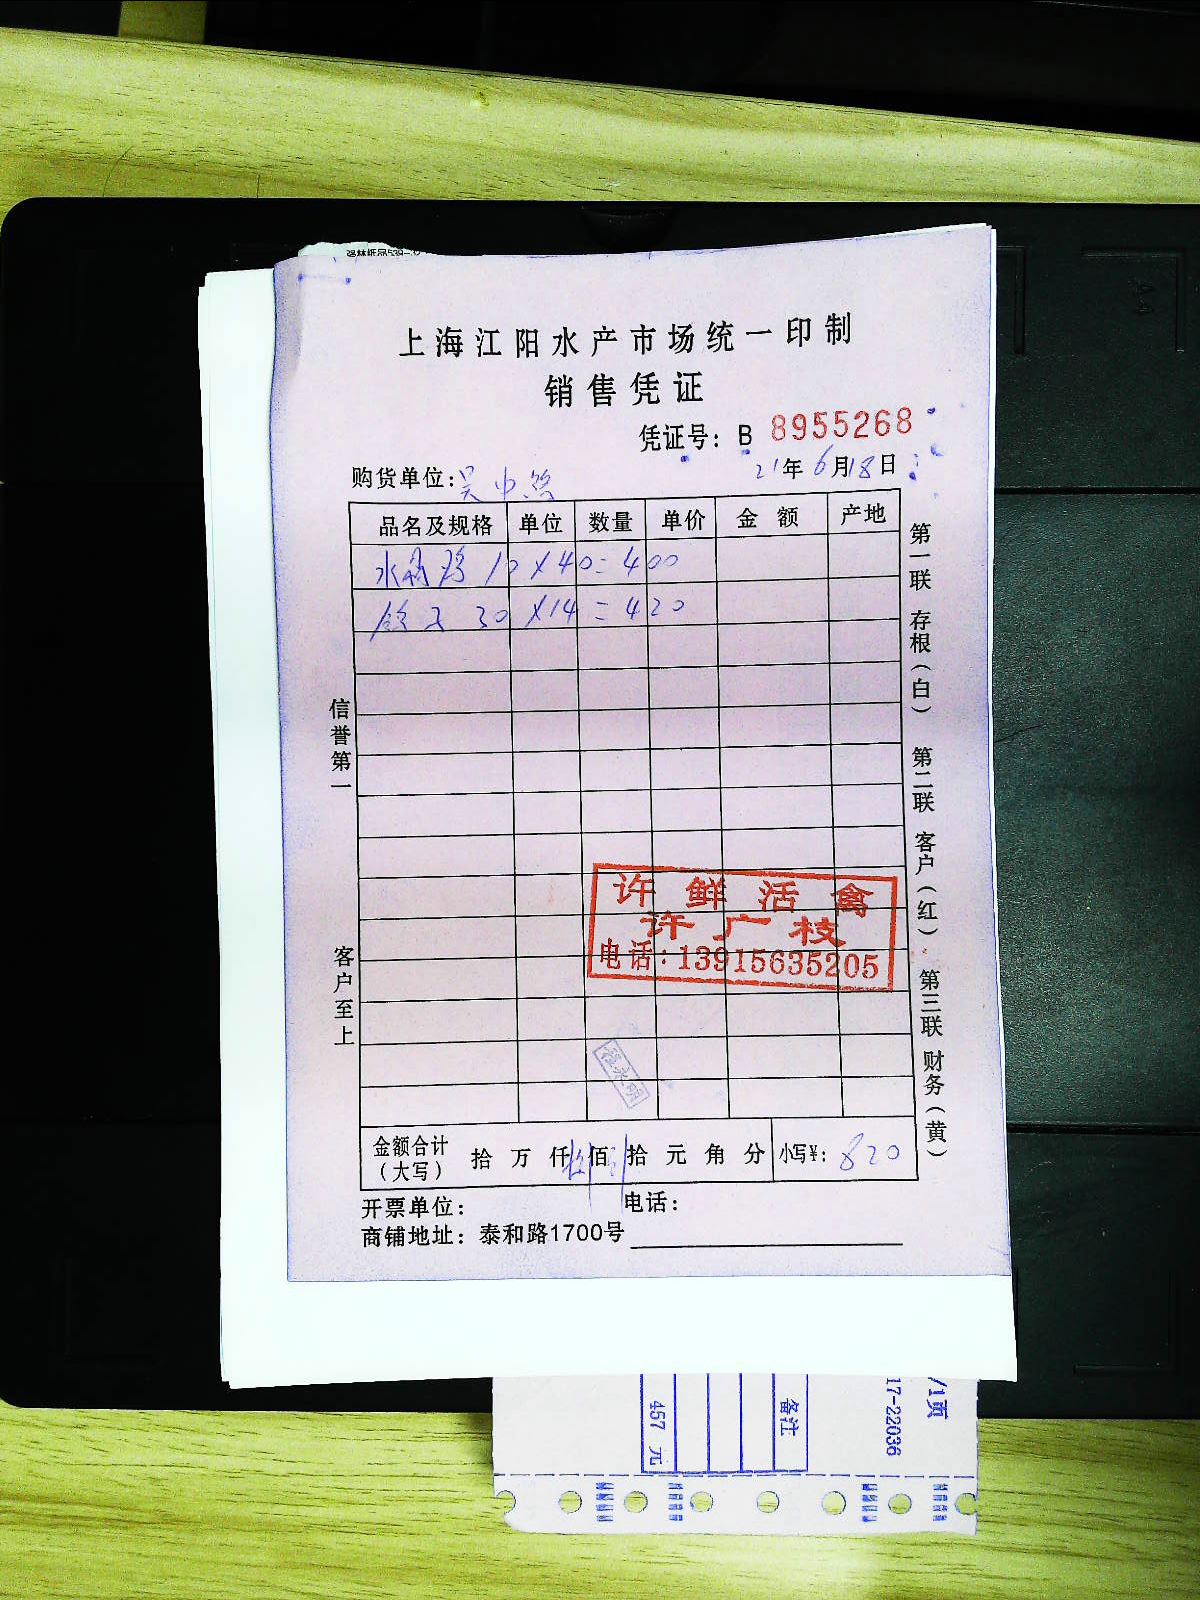 上海江阳水产市场统一印制
销售凭证
凭证号：B 8955268
购货单位：吴中路 21年6月18日
品名及规格 单位 数量 单价 金额 产地
水晶鸡 10×40=400
鸽子 30×14=420
信誉第一
客户至上
第一联 存根（白） 第二联 客户（红） 第三联 财务（黄）
许鲜活禽
许广枝
电话：13915635205
金额合计（大写） 拾 万 仟 佰 拾 元 角 分 小写¥：820
开票单位： 电话：
商铺地址：泰和路1700号
/1页
17-22036
备注
457 元